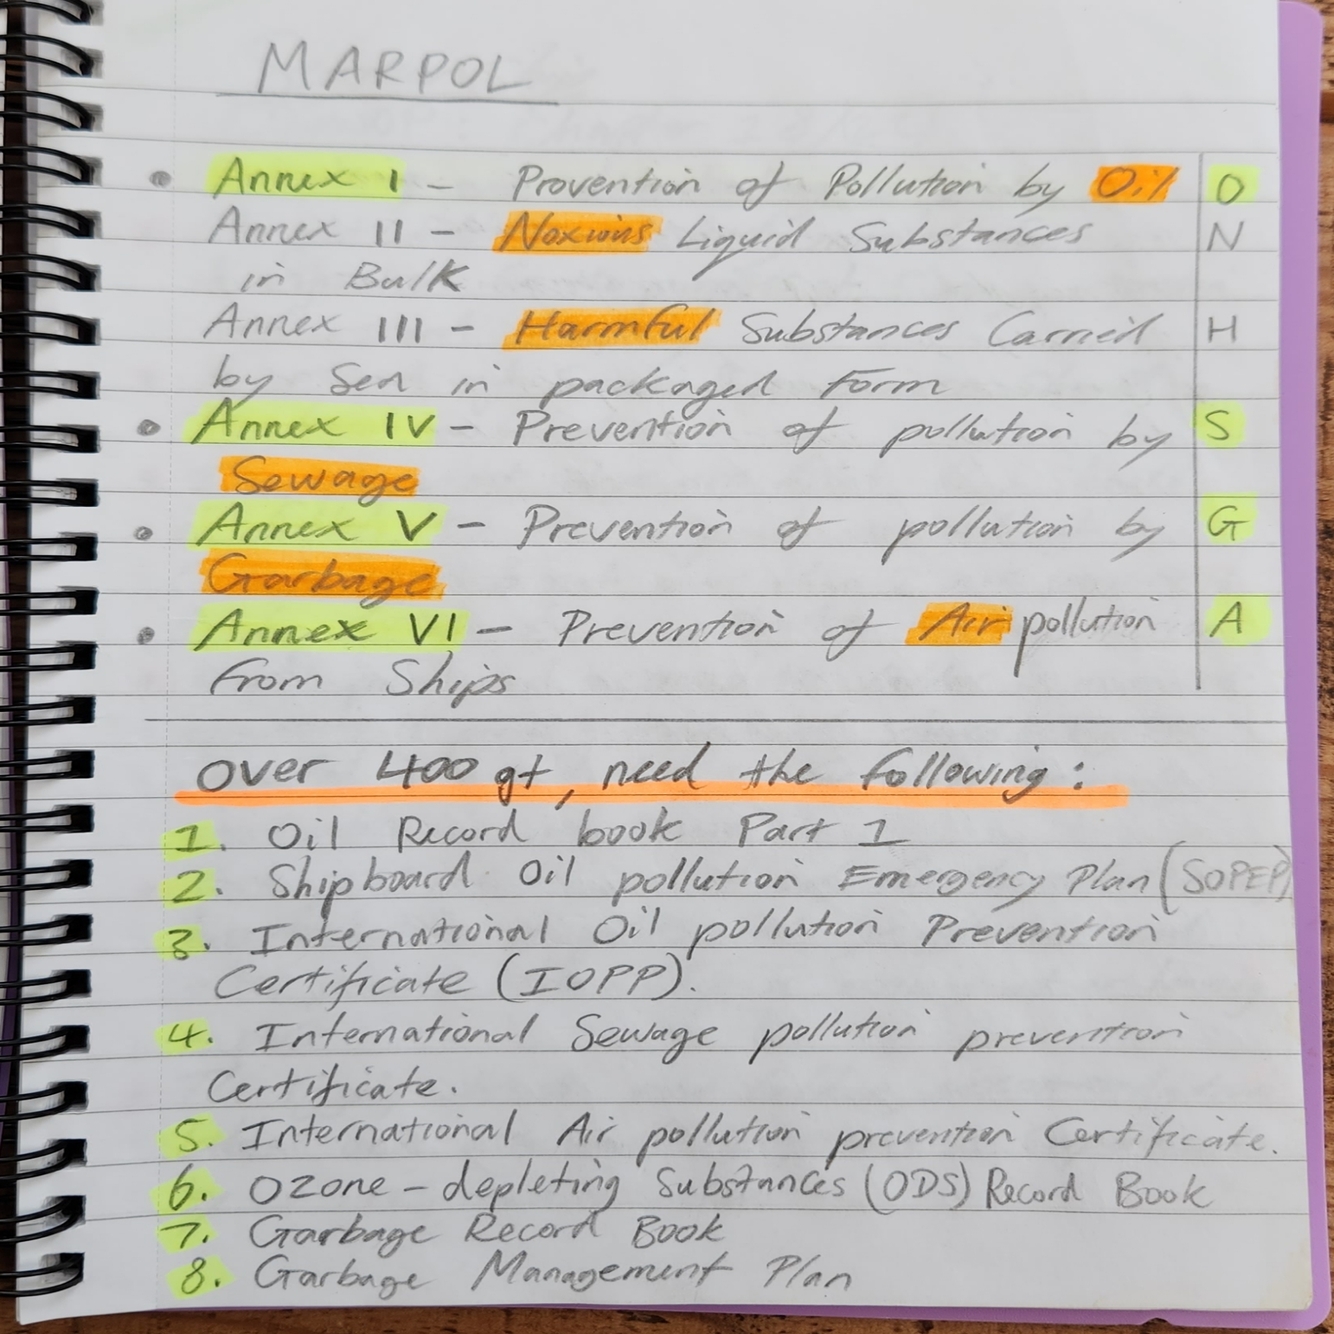 MARPOL
• Annex I - Provention of Pollution by Oil | O
Annex II - Noxious Liquid Substances | N
in Bulk
Annex III - Harmful Substances Carried | H
by Sea in packaged form
• Annex IV - Prevention of pollution by | S
Sewage
• Annex V - Prevention of pollution by | G
Garbage
• Annex VI - Prevention of Air pollution | A
from Ships
Over 400 gt, need the following:
1. Oil Record book Part 1
2. Shipboard Oil pollution Emergency Plan (SOPEP)
3. International Oil pollution Prevention
Certificate (IOPP).
4. International Sewage pollution prevention
Certificate.
5. International Air pollution prevention Certificate.
6. Ozone - depleting Substances (ODS) Record Book
7. Garbage Record Book
8. Garbage Management Plan